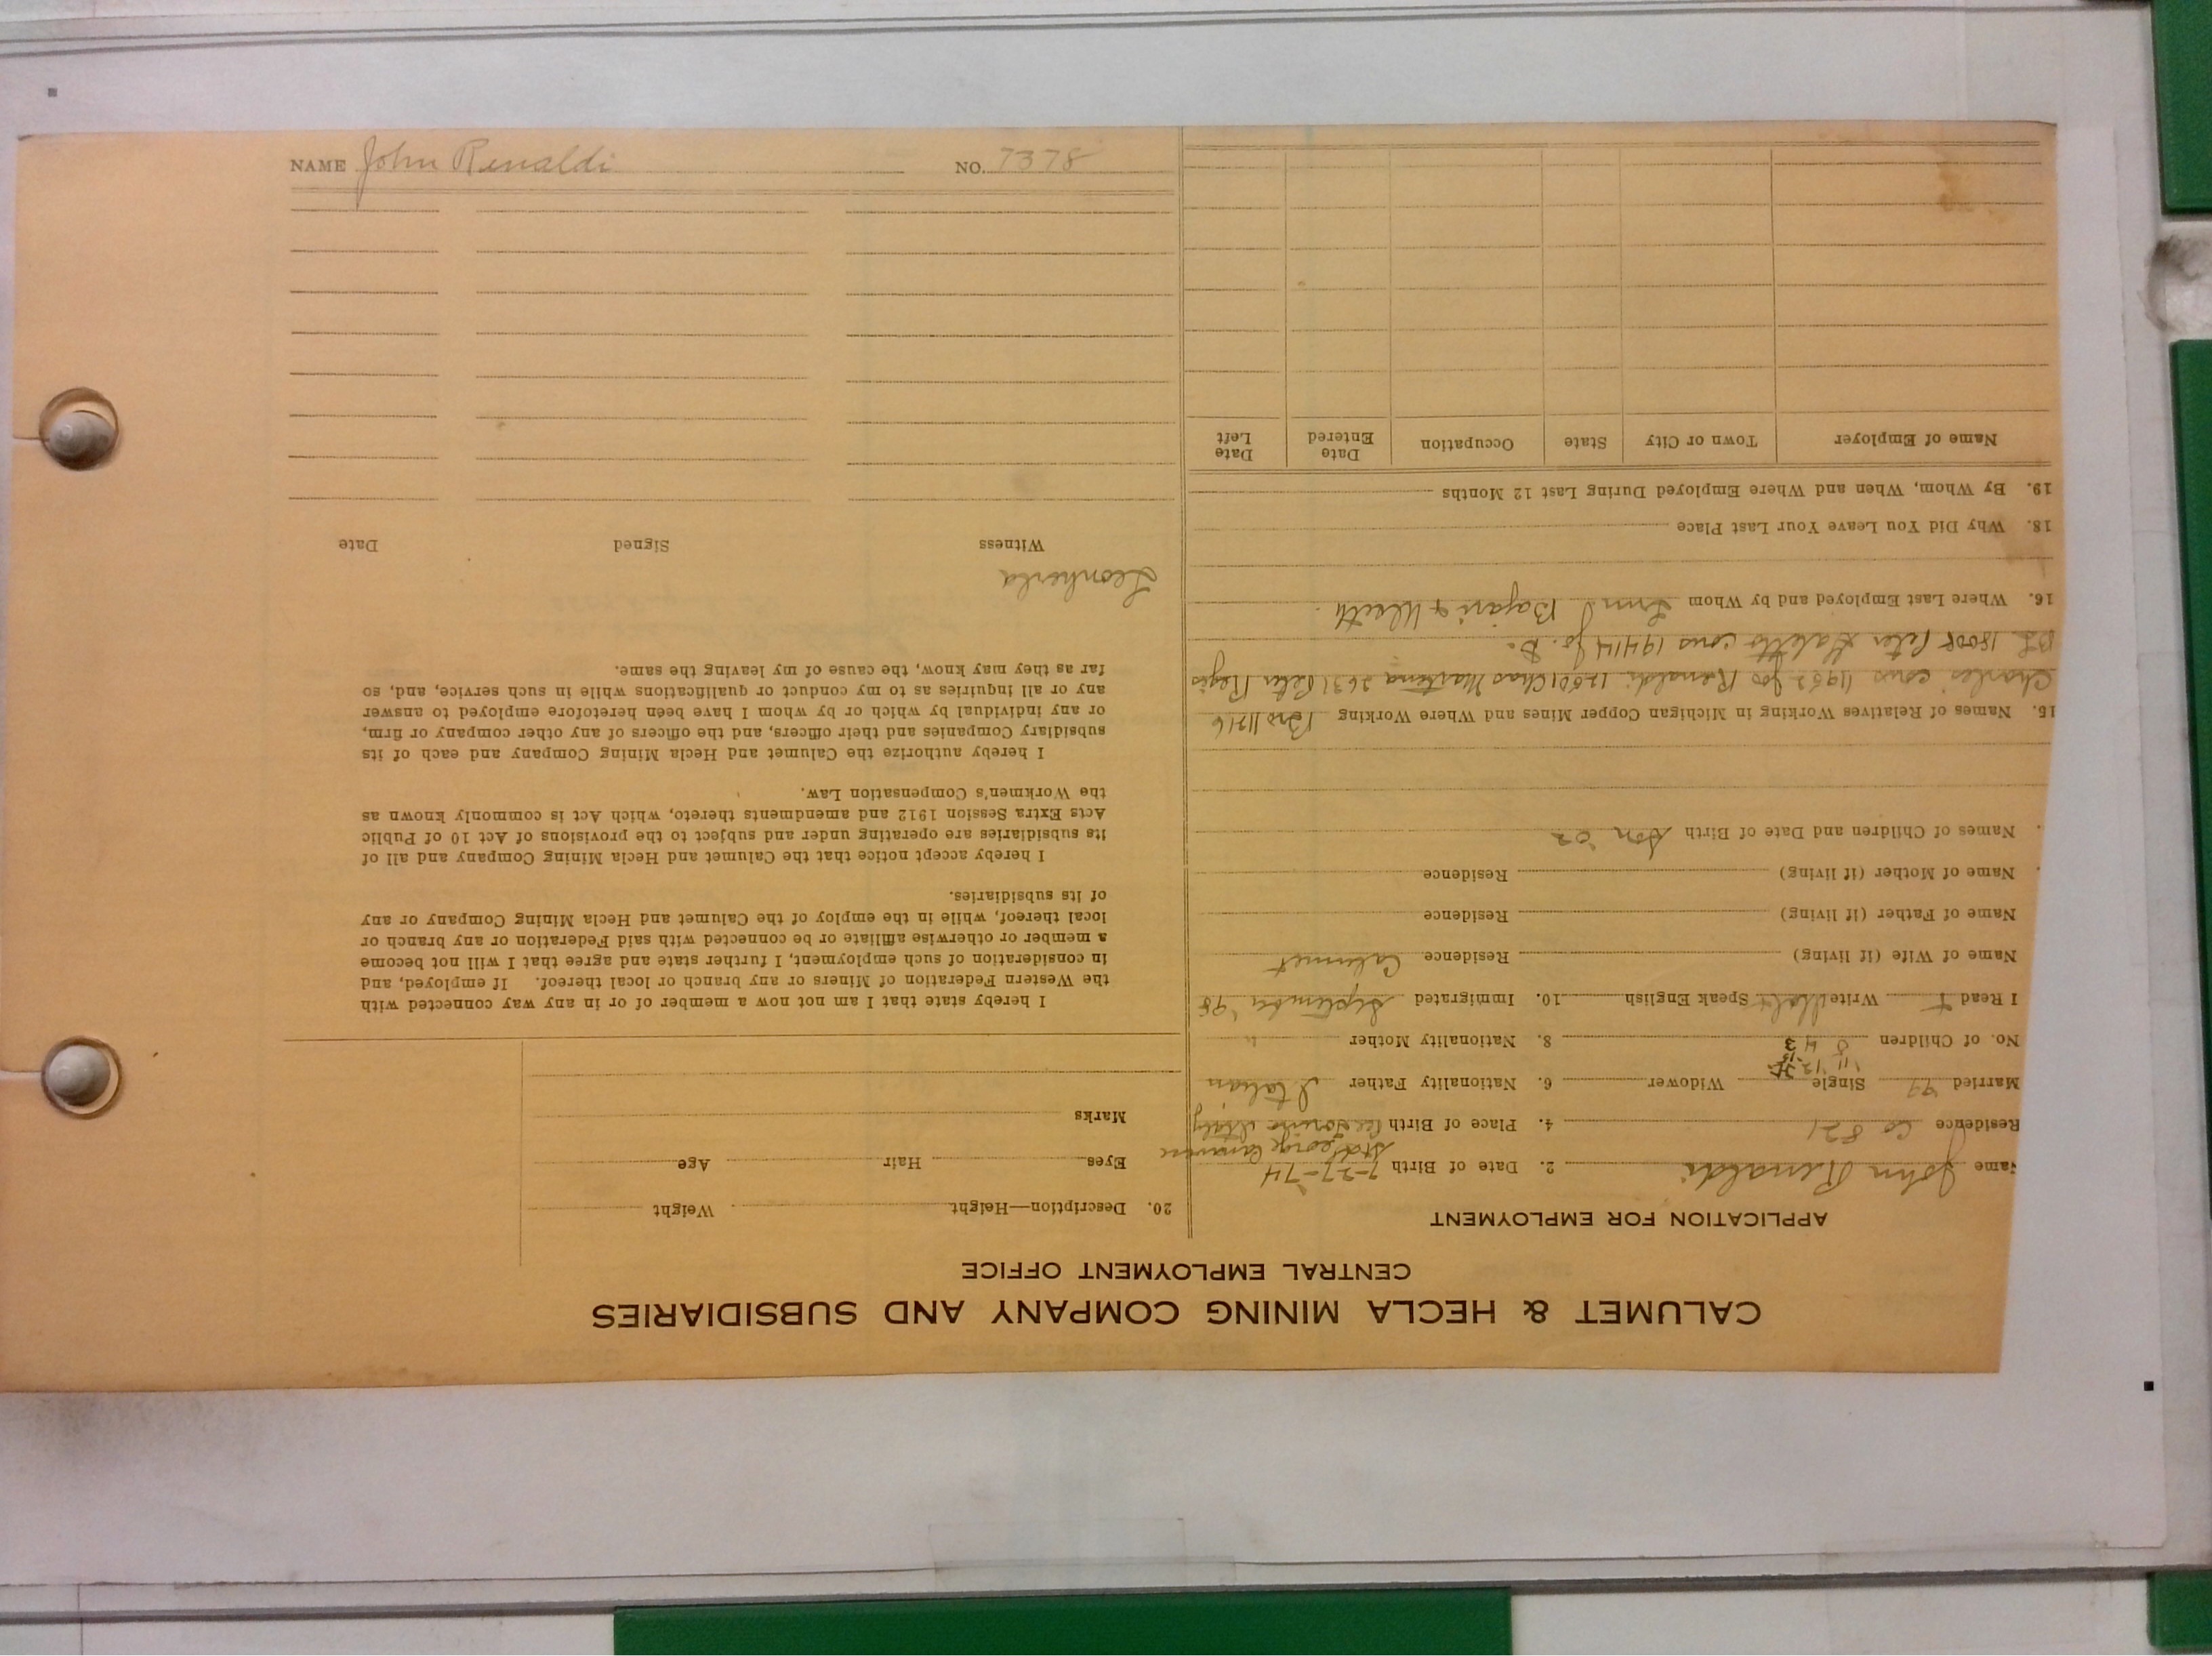 NAME John Renaldi NO. 7378
CALUMET & HECLA MINING COMPANY AND SUBSIDIARIES
CENTRAL EMPLOYMENT OFFICE
APPLICATION FOR EMPLOYMENT
Name John Renaldi 2. Date of Birth 7-27-74
St George Canavese
Residence Co 821 4. Place of Birth Italy
Married 97 Single Widower 6. Nationality Father Italian
'11 '12 '15
No. of Children 5 4 3 8. Nationality Mother "
I Read + Write Ital Speak English 10. Immigrated September '98
Name of Wife (if living) Residence Calumet
Name of Father (if living) Residence
Name of Mother (if living) Residence
Names of Children and Date of Birth Son '02
15. Names of Relatives Working in Michigan Copper Mines and Where Working Bro 11716
Charles cous 11962 Joe Renaldi 12501 Chas 2631 Peter
1800 Peter cous 19414 Jo. B.
16. Where Last Employed and by Whom
18. Why Did You Leave Your Last Place
19. By Whom, When and Where Employed During Last 12 Months
Name of Employer Town or City State Occupation Date Entered Date Left
20. Description—Height Weight
Eyes Hair Age
Marks
I hereby state that I am not now a member of or in any way connected with
the Western Federation of Miners or any branch or local thereof. If employed, and
in consideration of such employment, I further state and agree that I will not become
a member or otherwise affiliate or be connected with said Federation or any branch or
local thereof, while in the employ of the Calumet and Hecla Mining Company or any
of its subsidiaries.
I hereby accept notice that the Calumet and Hecla Mining Company and all of
its subsidiaries are operating under and subject to the provisions of Act 10 of Public
Acts Extra Session 1912 and amendments thereto, which Act is commonly known as
the Workmen's Compensation Law.
I hereby authorize the Calumet and Hecla Mining Company and each of its
subsidiary Companies and their officers, and the officers of any other company or firm,
or any individual by which or by whom I have been heretofore employed to answer
any or all inquiries as to my conduct or qualifications while in such service, and, so
far as they may know, the cause of my leaving the same.
Witness Signed Date